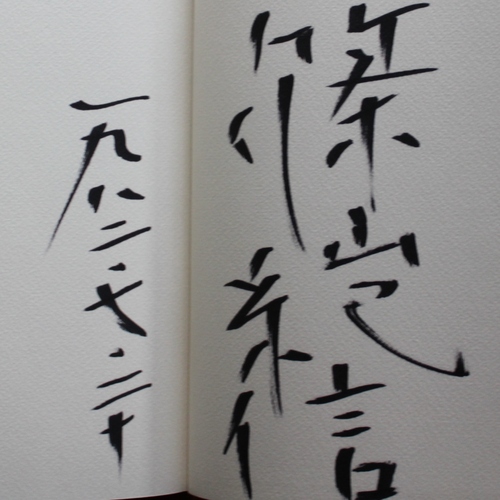 篠山紀信
一九八二・七・二十